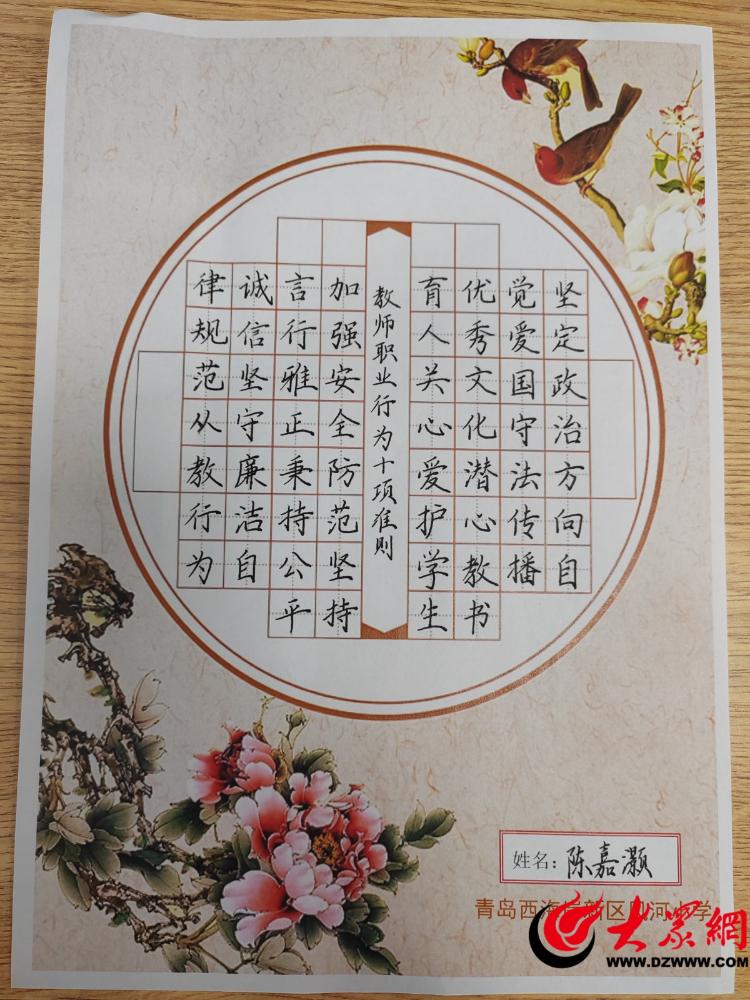 坚定政治方向自
觉爱国守法传播
优秀文化潜心教书
育人关心爱护学生
教师职业行为十项准则
加强安全防范坚持
言行雅正秉持公平
诚信坚守廉洁自
律规范从教行为
姓名：陈嘉灏
青岛西海岸新区 河小学
大众網
WWW.DZWWW.COM